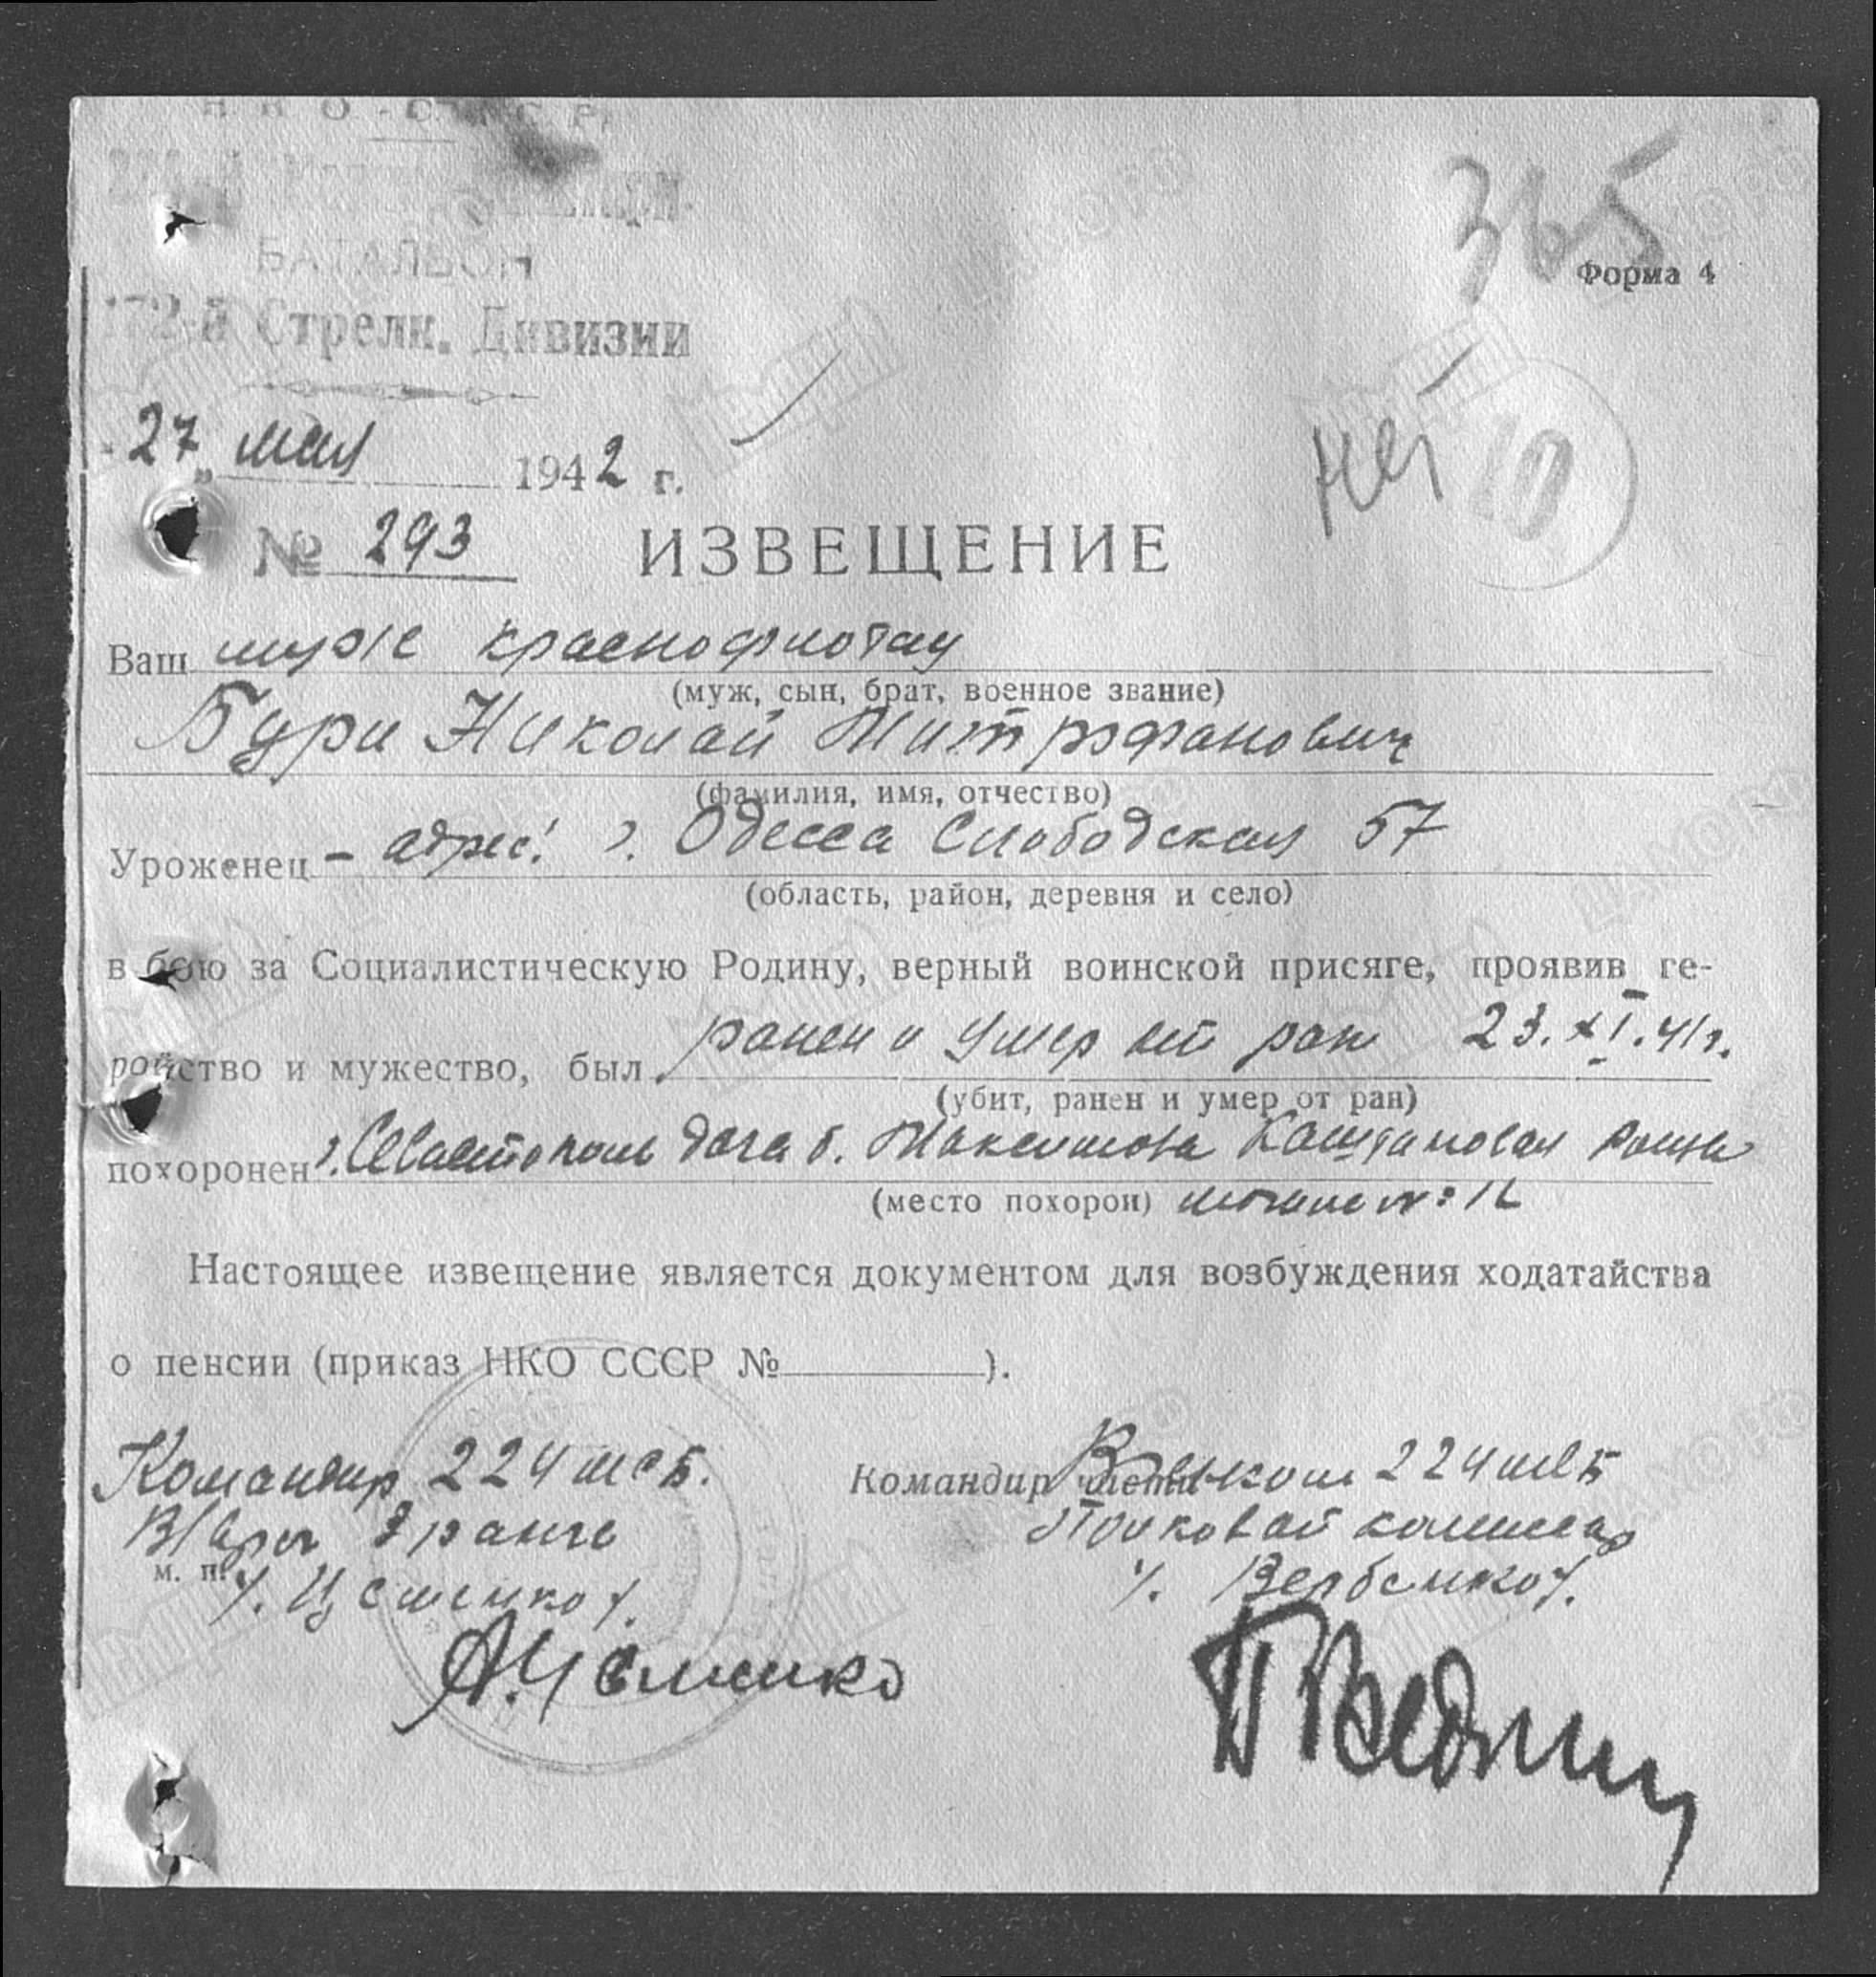 Н К О - С С С Р
БАТАЛЬОН
172-й Стрелк. Дивизии
365
Форма 4
27 " мая 1942 г.
нет
10
№ 293 ИЗВЕЩЕНИЕ
Ваш муж краснофлотец
(муж, сын, брат, военное звание)
Бури Николай Митрофанович
(фамилия, имя, отчество)
Уроженец - адрес: г. Одесса Слободская 57
(область, район, деревня и село)
в бою за Социалистическую Родину, верный воинской присяге, проявив ге-
ройство и мужество, был ранен и умер от ран 23.XI.41г.
(убит, ранен и умер от ран)
похоронен г. Севастополь дача б. Максимова Каштановая роща
(место похорон) могила №
Настоящее извещение является документом для возбуждения ходатайства
о пенсии (приказ НКО СССР № ).
Командир 224 мсб. Командир части Военком 224 мсб
В/врач 3 ранга Полковой комиссар
м. п. /. Цеменко /. /. Вербенко /.